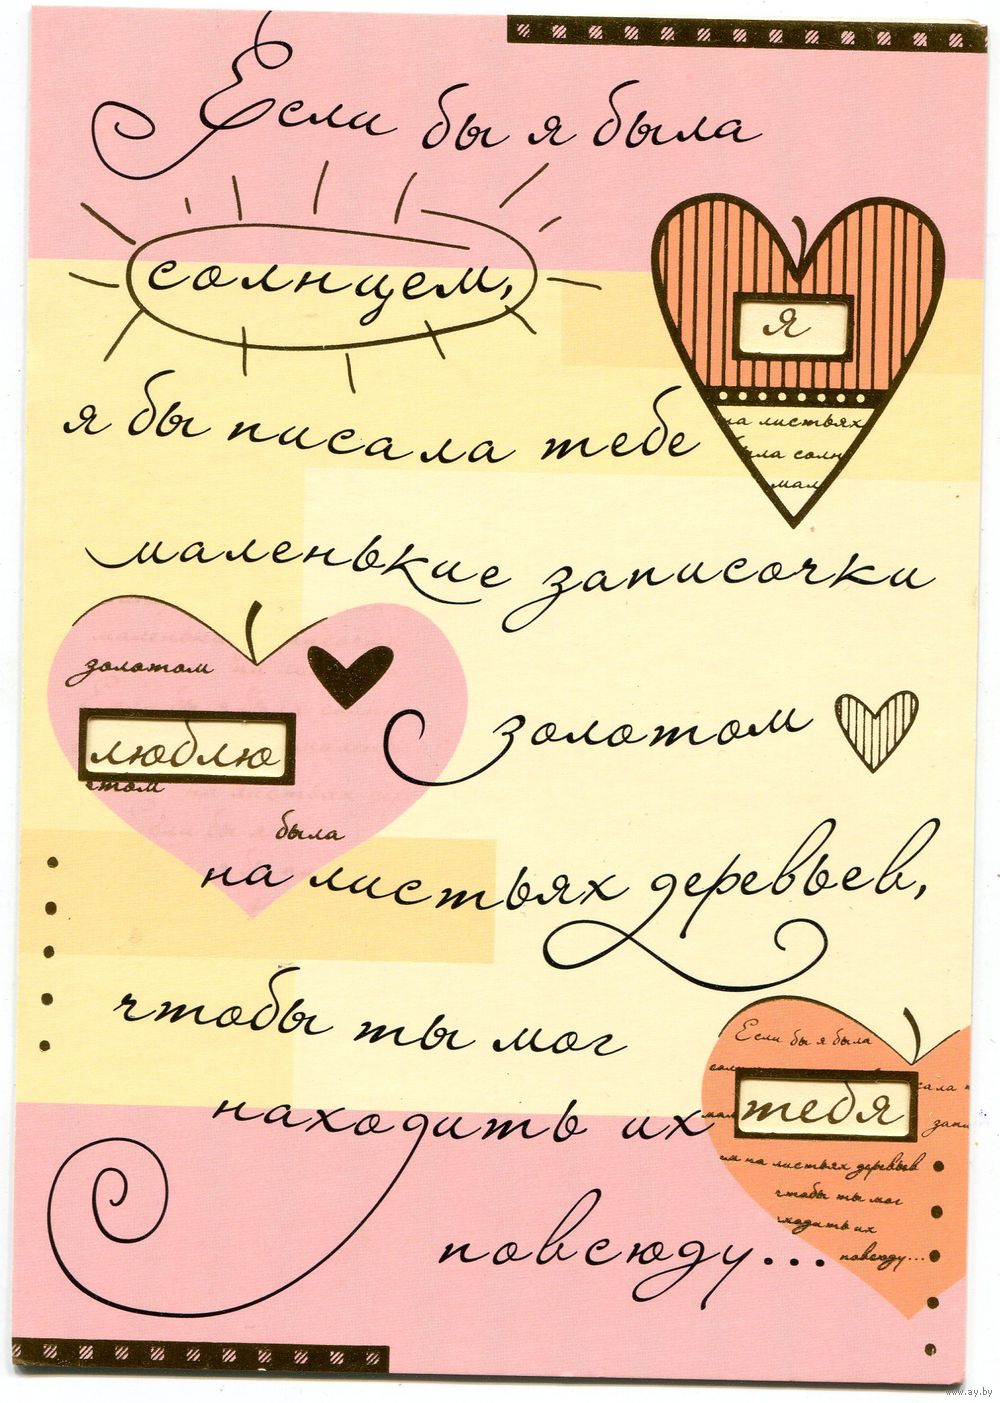 Если бы я была
солнцем,
я
я бы писала тебе
на листьях
была солн
мал
маленькие записочки
золотом
люблю
золотом
была
на листьях деревьев,
чтобы ты мог
Если бы я была
находить их
тебя
запи
на листьях деревьев
чтобы ты мог
ходить их
повсюду...
повсюду...
www.ay.by